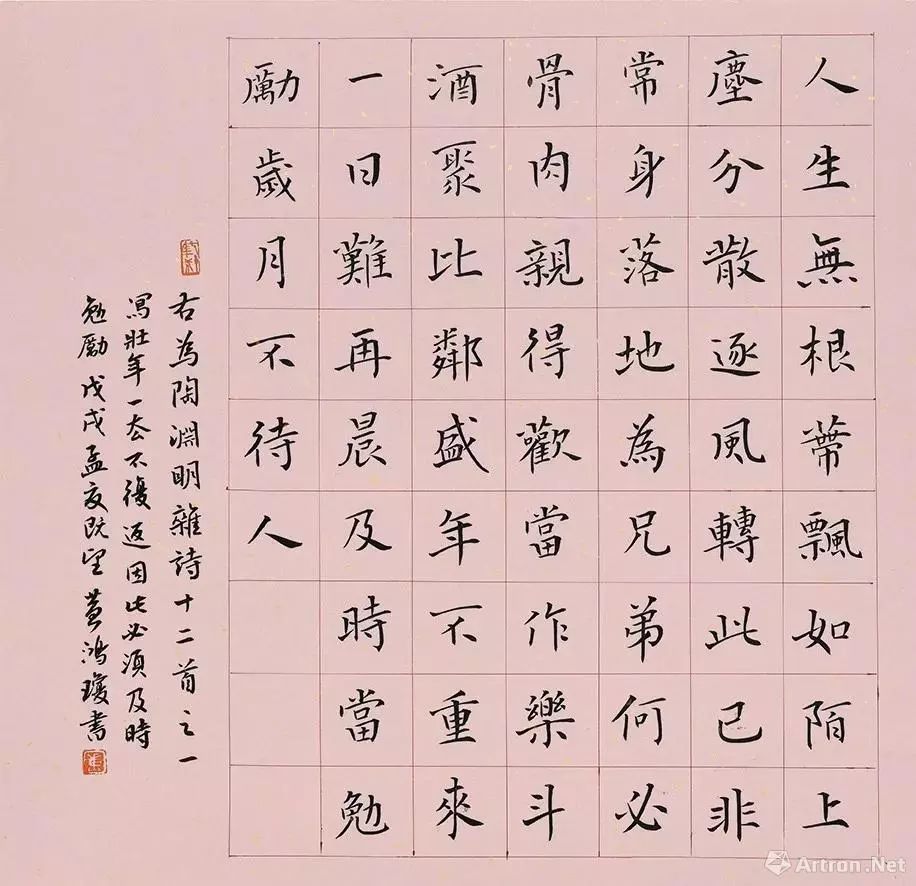 人生無根蒂飄如陌上
塵分散逐風轉此已非
常身落地為兄弟何必
骨肉親得歡當作樂斗
酒聚比鄰盛年不重來
一日難再晨及時當勉
勵歲月不待人
右為陶淵明雜詩十二首之一
寫壯年一去不復返因此必須及時
勉勵戊戌孟夏既望黃鴻瓊書
Artron.Net